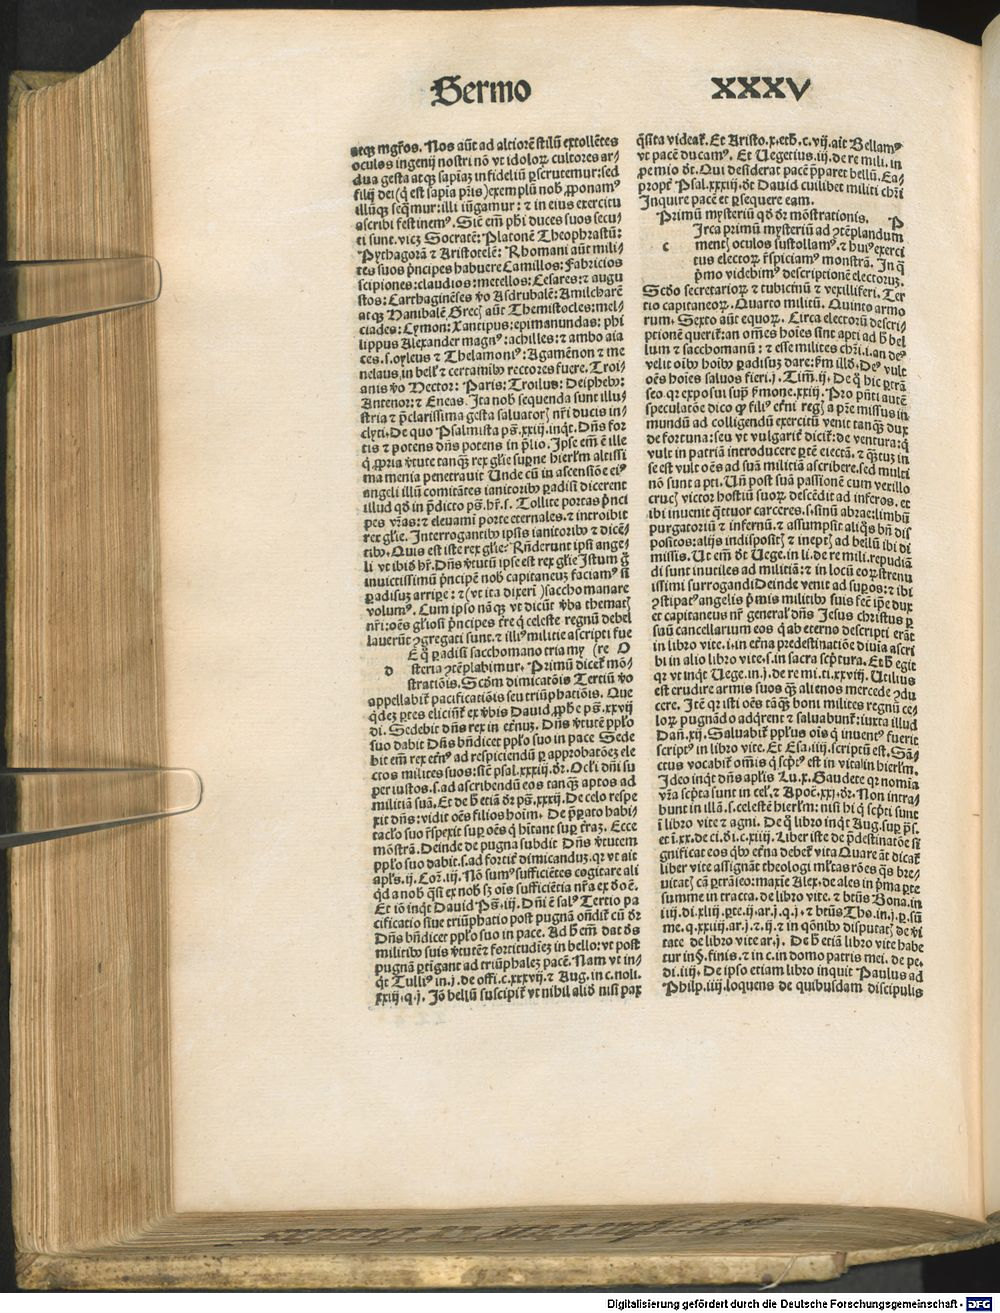 Sermo XXXV
atqꝫ mgr̄os. Nos aūt ad altiorē stilū extollētes
oculos ingenij nostri nō vt idoloꝝ cultores ar⸗
dua gesta atqꝫ sapīaꝫ infideliū ꝑscrutemur: sed
filij dei (q̄ est sapīa pr̄is) exemplū nob̄ ꝓponamꝰ
illūqꝫ seq̄mur: illi iūgamur: ⁊ in eius exercitu
ascribi festinemꝰ. Sic em̄ ph̄i duces suos secu⸗
ti sunt. vicꝫ Socratē: Platonē Theophrastū:
Pythagorā ⁊ Aristotelē: Rhomani aūt mili⸗
tes suos p̄ncipes habuere Camillos: Fabricios
scipiones: claudios: metellos: Cesares: ⁊ augu
stos: Carthaginēses v̄o Asdrubalē: Amilcharē
atqꝫ Hanibalē Grecꝭ aūt Themistocles: mel⸗
ciades: Cymon: Xantipus: epimanundas: phi
lippus Alexander magnꝰ: achilles: ⁊ ambo aia
ces. s. oyleus ⁊ Thelamonīꝰ: Agamēnon ⁊ me
nelaus, in bellꝭ ⁊ certamībꝰ rectores fuere. Troi⸗
anis v̄o Hector: Paris: Troilus: Deiphebꝰ:
Antenor: ⁊ Eneas. Ita nob̄ sequenda sunt illu⸗
stria ⁊ p̄clarissima gesta saluatorꝭ nr̄i ducis in⸗
clyti. De quo Psalmista ps̄. xxiij. inq̄t. Dn̄s for
tis ⁊ potens dn̄s potens in p̄lio. Ipse em̄ ē ille
q̄ ꝓpria v̄tute tanqꝫ rex gl̄ie suꝑne hierl̄m altissi
ma menia penetrauit Unde cū in ascensiōe eiꝰ
angeli illū comitātes ianitoribꝰ ꝑadisi dicerent
illud qd̄ in p̄dicto ps̄. hr̄. s. Tollite portas p̄nci
pes vr̄as: ⁊ eleuami porte eternales. ⁊ introibit
rex gl̄ie. Interrogantibꝰ ipsis ianitoribꝰ ⁊ dicē⸗
tibꝰ. Quis est iste rex gl̄ie: Rn̄derunt ipsi ange⸗
li vt ibid̄ hr̄. Dn̄s v̄tutū ipse est rex gl̄ie Istum g̊
inuictissimū p̄ncipē nob̄ capitaneuꝫ faciamꝰ si
ꝑadisuꝫ arripe: ⁊ (vt ita dixerī) sacchomanare
volumꝰ. Cum ipso nāqꝫ vt dicūt v̄ba thematꝭ
nr̄i: oēs gl̄iosi p̄ncipes tr̄e q̄ celeste regnū debel
lauerūt ↄgregati sunt. ⁊ illiꝰ militie ascripti fue
d E q̄ ꝑadisi sacchomano tria my (re O
steria ↄtēplabimur. Primū dicet̄ mō⸗
stratiōis. Scd̄m dimicatōis Tertiū v̄o
appellabit̄ pacificatiōis seu triūphatiōis. Que
q̄deꝫ ꝑtes eliciūt̄ ex v̄bis Dauid ꝓphe ps̄. xxvij
di. Sedebit dn̄s rex in et̄nuꝫ. Dn̄s v̄tutē pp̄lo
suo dabit Dn̄s bn̄dicet pp̄lo suo in pace Sede
bit em̄ rex et̄nꝰ ad respiciendū ꝑ approbatōeꝫ ele
ctos milites suos: sic̄ psal. xxxiij. dr̄. Ocl̄i dn̄i su
per iustos. s. ad ascribendū eos tanqꝫ aptos ad
militiā suā. Et de h̄ etiā dr̄ ps̄. xxxij. De celo respe
xit dn̄s: vidit oēs filios hoīm. De p̄ꝑato habi⸗
tacl̄o suo r̄spexit suꝑ oēs q̄ hītant suꝑ t̄raꝫ. Ecce
mōstrā. Deinde de pugna subdit Dn̄s v̄tutem
pp̄lo suo dabit. s. ad fortit̄ dimicanduꝫ. qꝛ vt ait
apl̄s. ij. Coꝛ. iij. Nō sumꝰ sufficiētes cogitare ali
qd̄ a nob̄ q̄si ex nob̄ sꝫ oīs sufficiētia nr̄a ex do ē.
Et iō inq̄t Dauid Ps̄. iij. Dn̄i ē salꝰ Tertio pa
cificatio siue triūphatio post pugnā on̄dit̄ cū dr̄
Dn̄s bn̄dicet pp̄lo suo in pace. Ad h̄ em̄ dat dn̄s
militibꝰ suis v̄tutē ⁊ fortitudīeꝫ in bello: vt post
pugnā ꝑtigant ad triūphaleꝫ pacē. Nam vt in⸗
q̄t Tulliꝰ in. j. de offi. c. xxxvij. ⁊ Aug. in c. noli.
xxiij. q. j. Iō bellū suscipit̄ vt nihil aliō nisi pax
q̄sita videat̄. Et Aristo. x. eth. c. vij. ait Bellamꝰ
vt pacē ducamꝰ. Et Uegetius. iij. de re mili. in
ꝓemio dr̄. Qui desiderat pacē p̄paret bellū. Ea⸗
propt̄ Psal. xxxiij. dr̄ Dauid cuilibet militi chr̄i
Inquire pacē et ꝑsequere eam.
Primū mysteriū qd̄ dr̄ mōstrationis. P
c Irca primū mysteriū ad ↄtēplandum
mentꝭ oculos sustollamꝰ. ⁊ huiꝰ exerci
tus electoꝝ r̄spiciamꝰ monstrā. In q̄
p̄mo videbimꝰ descriptionē electoruꝫ.
Scd̄o secretarioꝝ ⁊ tubicinū ⁊ vexilliferi. Ter
tio capitaneoꝝ. Quarto militū. Quinto armo
rum. Sexto aūt equoꝝ. Circa electorū descri⸗
ptionē querit̄: an om̄es hoīes sint apti ad h̄ bel
lum ⁊ sacchomanū: ⁊ esse milites chr̄i. i. an deꝰ
velit oībꝰ hoībꝰ ꝑadisuꝫ dare: ẜm illd̄. Deꝰ vult
oēs hoīes saluos fieri. j. Tim̄. ij. De q̄ hic ꝑtrā
seo qꝛ exposui sup̄ ẜmone. xxiij. Pro pn̄ti autē
speculatōe dico ꝙ filiꝰ et̄ni regꝭ a pr̄e missus in
mundū ad colligendū exercitū venit tanqꝫ dux
de fortuna: seu vt vulgarit̄ dicit̄: de ventura: q̄
vult in patriā introducere ꝑtē eiectā. ⁊ q̄ꝫtuꝫ in
se est vult oēs ad suā militiā ascribere. sed multi
nō sunt apti. Un̄ post suā passionē cum vexillo
crucꝭ victor hostiū suoꝝ descēdit ad inferos. et
ibi inuenit q̄ttuor carceres. s. sinū abrae: limbū
purgatoriū ⁊ infernū. ⁊ assumpsit aliq̄s bn̄ dis
positos: alijs indispositꝭ ⁊ ineptꝭ ad bellū ibi di
missis. Ut em̄ dr̄ Uege. in li. de re mili. repudiā
di sunt inutiles ad militiā: ⁊ in locū eoꝝ strenu
issimi surrogandi Deinde venit ad suꝑos: ⁊ ibi
ↄstipatꝰ angelis p̄mis militibꝰ suis fec̄ ip̄e dux
et capitaneus nr̄ general̄ dn̄s Jesus christus ꝑ
suū cancellarium eos q̄ ab eterno descripti erāt
in libro vite. i. in et̄na predestinatiōe diuīa ascri
bi in alio libro vite. s. in sacra scp̄tura. Et h̄ egit
qꝛ vt inq̄t Uege. in. j. de re mi. ti. xxviij. Utilius
est erudire armis suos qꝫ alienos mercede ↄdu
cere. Itē qꝛ isti oēs tāqꝫ boni milites regnū ce⸗
loꝝ pugnādo adq̄rent ⁊ saluabunt̄: iuxta illud
Dan̄. xij. Saluabit̄ pp̄lus oīs q̄ inuentꝰ fuerit
scriptꝰ in libro vite. Et Esa. iiij. scriptū est. Sā⸗
ctus vocabit̄ om̄is q̄ scp̄tꝰ est in vita in hierl̄m.
Ideo inq̄t dn̄s apl̄is Lu. x. Gaudete qꝛ nomīa
vr̄a scp̄ta sunt in celꝭ. ⁊ Apoc̄. xxj. dr̄. Non intra⸗
bunt in illā. s. celestē hierl̄m: nisi hi q̄ scp̄ti sunt
ī libro vite ⁊ agni. De q̄ libro inq̄t Aug. suꝑ ps̄.
et ī. xx. de ci. di. c. xiiij. Liber iste de p̄destinatōe si
gnificat eos q̄bꝰ et̄na debet̄ vita Quare āt dicat̄
liber vite assignāt theologi ml̄tas rōes q̄s bre⸗
uitatꝭ cā ꝑtrāseo: maxīe Alex. de ales in p̄ma ꝑte
summe in tracta. de libro vite. ⁊ btūs Bona. in
iiij. di. xliij. ꝑte. ij. ar. j. q. j. ⁊ btūs Tho. in. j. ꝑ. sū
me. q. xxiiij. ar. j. ⁊. ij. ⁊ in qōnibꝰ disputatꝭ de v̄i
tate de libro vite ar. j. De h̄ etiā libro vite habe
tur in h̄. finis. ⁊ in c. in domo patris mei. de pe.
di. iiij. De ipso etiam libro inquit Paulus ad
Philp̄. iiij. loquens de quibusdam discipulis
Digitalisierung gefördert durch die Deutsche Forschungsgemeinschaft - DFG